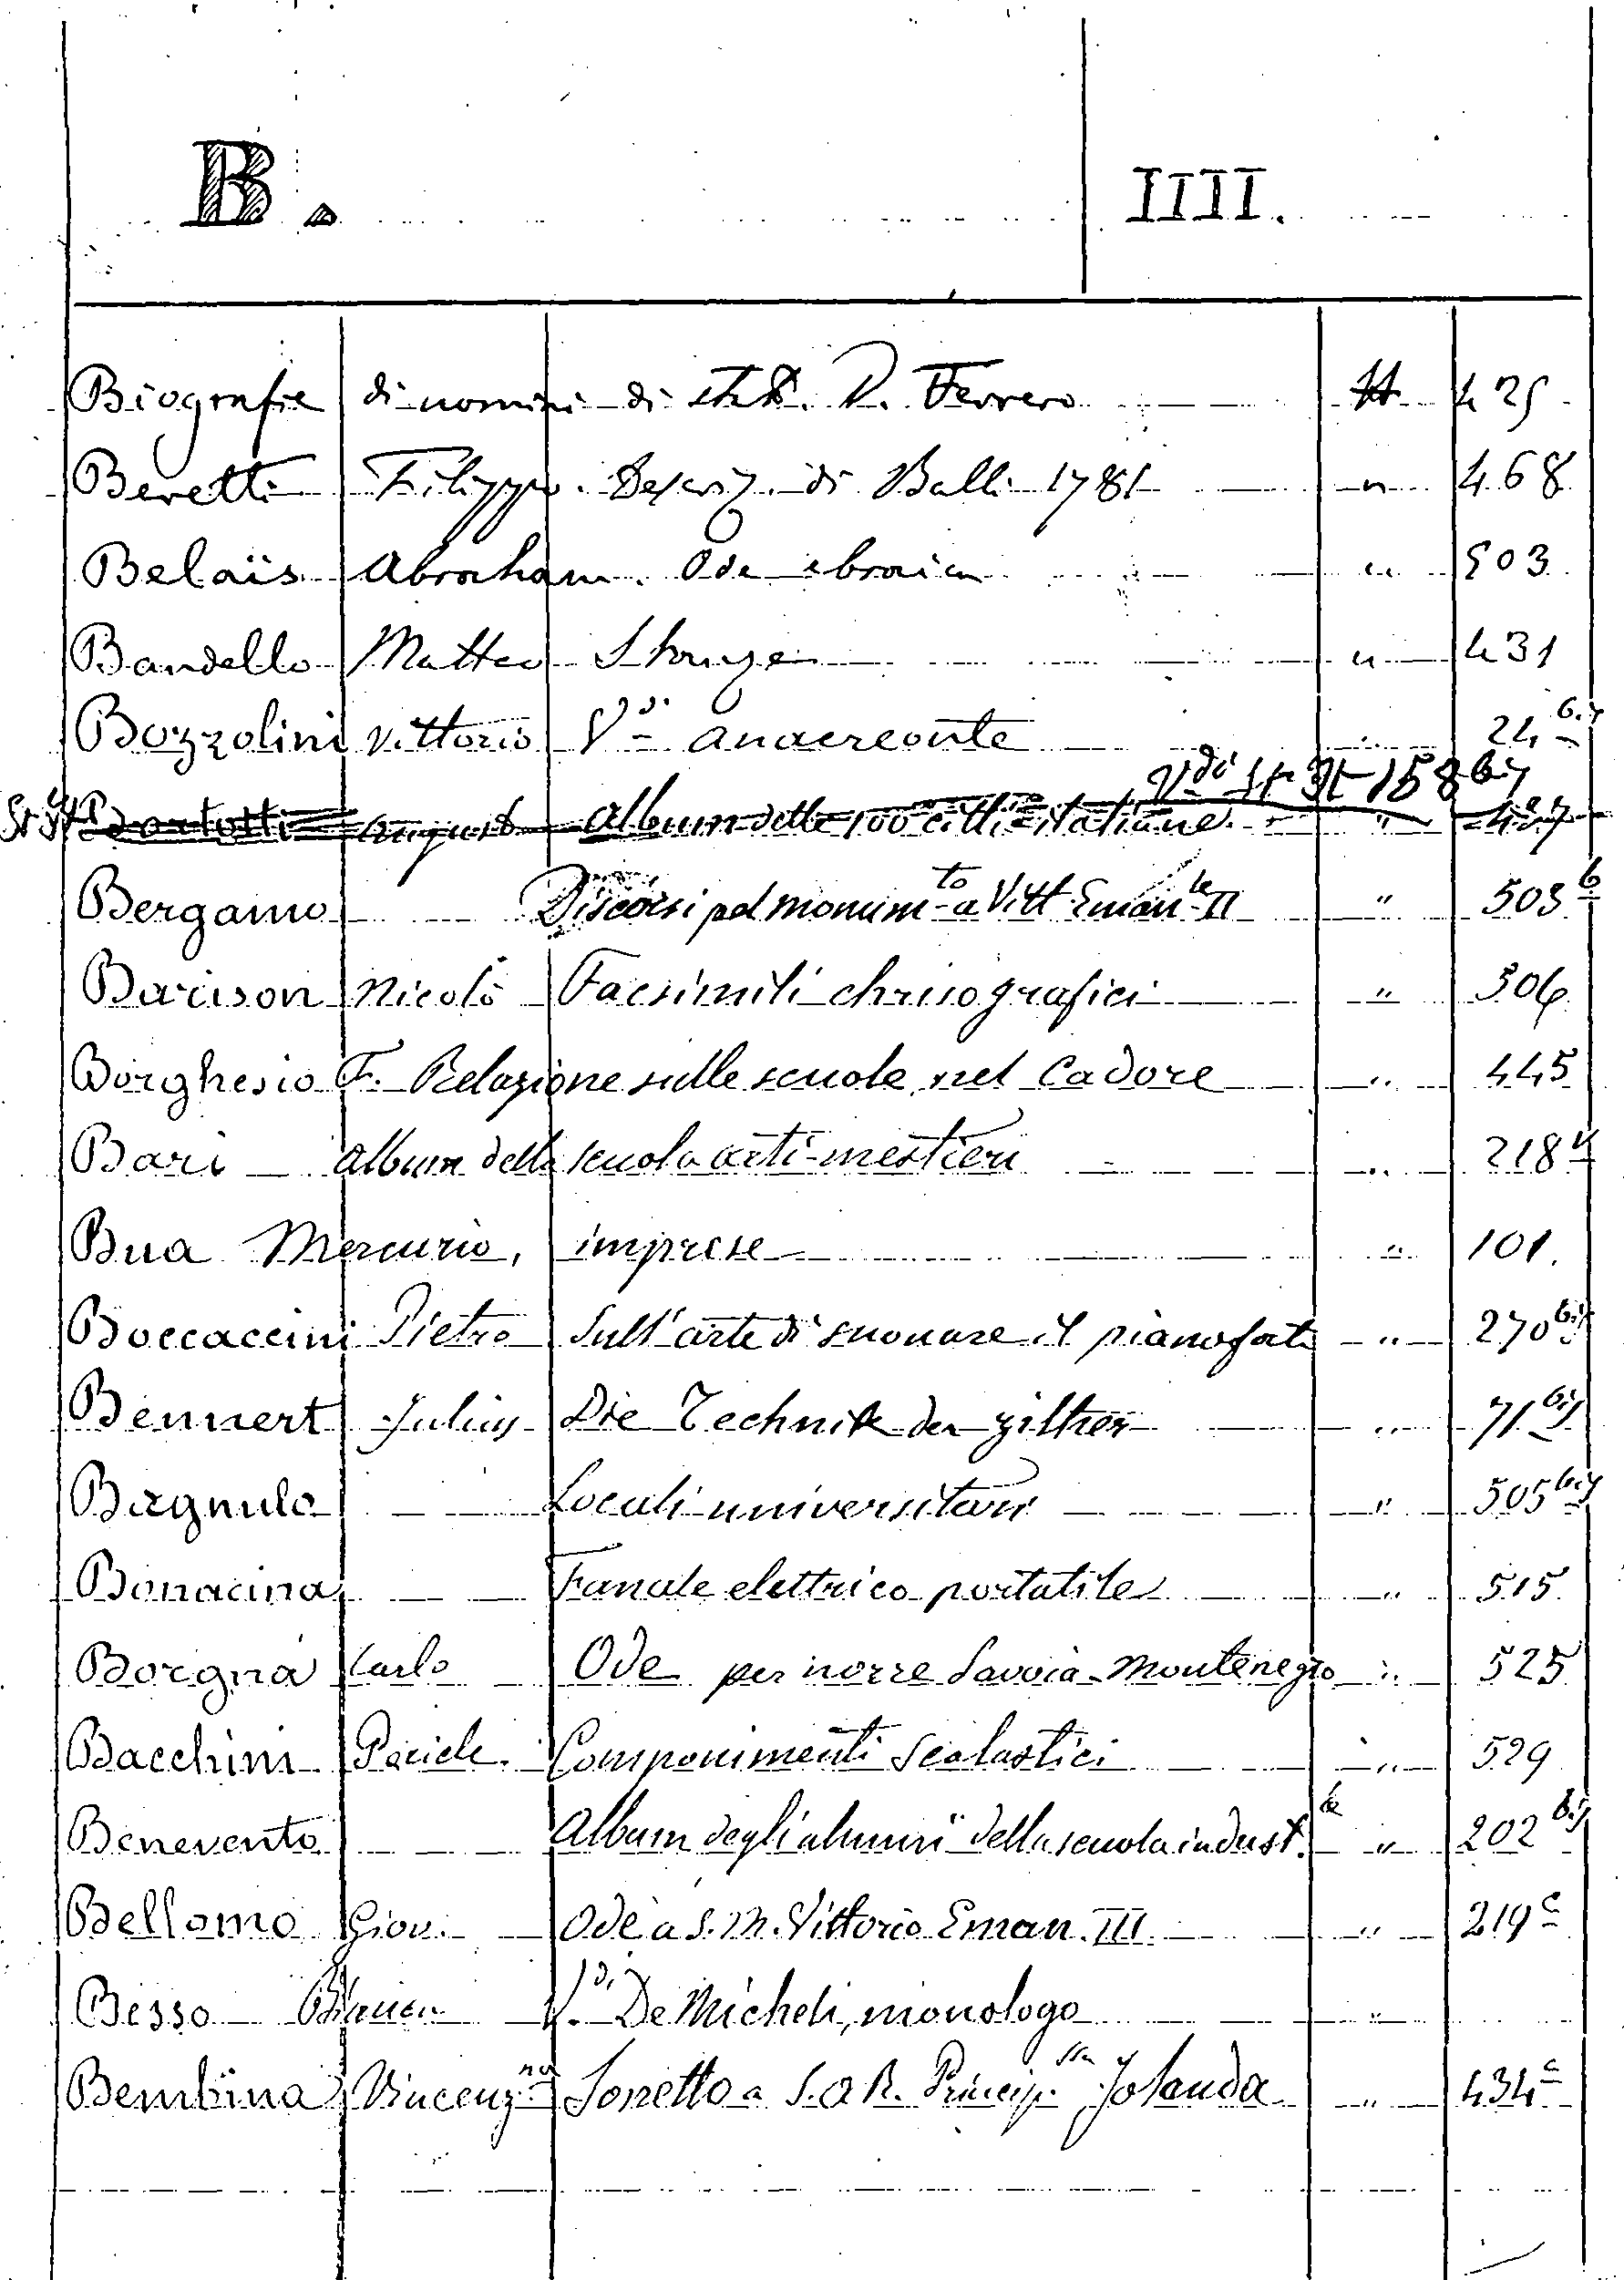 B. IIII.
Biografie di uomini di stato. V. Ferrero 425
Beretti Filippo. Descriz. di Balli 1781 " 468
Belaïs Abraham. Ode ebraica " 503
Bandello Matteo Sforza " 431
Bozzolini Vittorio Vdi Anacreonte 24 bis
Vdi St 158 bis
August Album delle 100 città italiane " 427
Bergamo Discorsi pel monumto a Vitt Emanle II " 503 b
Barison Nicolò Facsimili chrisografici " 506
Borghesio F. Relazione sulle scuole nel Cadore " 445
Bari album della scuola arti-mestieri " 218
Bua Mercurio, imprese " 101.
Boccaccini Pietro Sull'arte di suonare il pianoforte " 270 bis
Bennert Julius Die Technik der Zither " 71 bis
Bagnulo Locali universitari " 505 bis
Bonacina Fanale elettrico portatile " 515
Borgna Carlo Ode per nozze Savoia-Montenegro " 525
Bacchini Pericle. Componimenti scolastici " 529
Benevento Album degli alunni della scuola indust.le " 202 bis
Bellomo Giov. Ode a S. M. Vittorio Eman. III " 219 c
Besso Bianca Vdi De Micheli, monologo "
Bembina Vincenzna Sonetto a S. A R. Princip.ssa Jolanda " 434 c